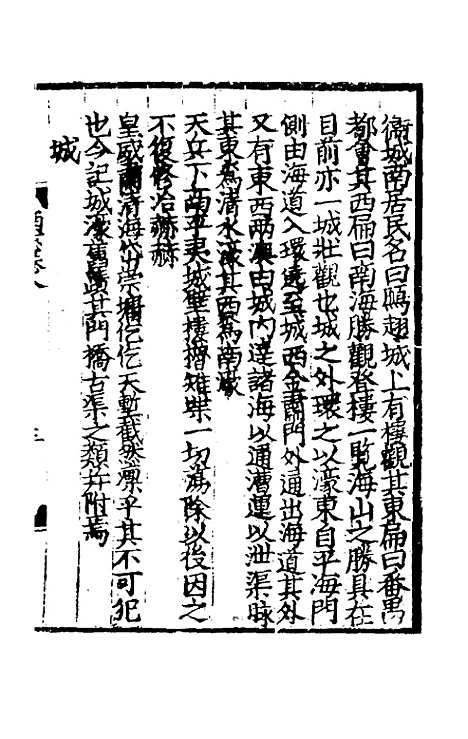 衞城南居民名曰鴈翅城上有樓觀其東扁曰番禺
都會其西扁曰南海勝觀登樓一覽海山之勝具在
目前亦一城壯觀也城之外環之以濠東自平海門
側由海道入環遶至城西金肅門外通出海道其外
又有東西兩澳由城内達諸海以通漕運以泄渠脉
其東爲清水濠其西爲南濠
天兵下南平夷城壁樓櫓雉堞一切蕩除以後因之
不復修治赫赫
皇威肅清海岱崇墉仡仡天塹截然凛乎其不可犯
也今記城濠舊蹟其門橋古渠之類并附焉
城
卷八
三